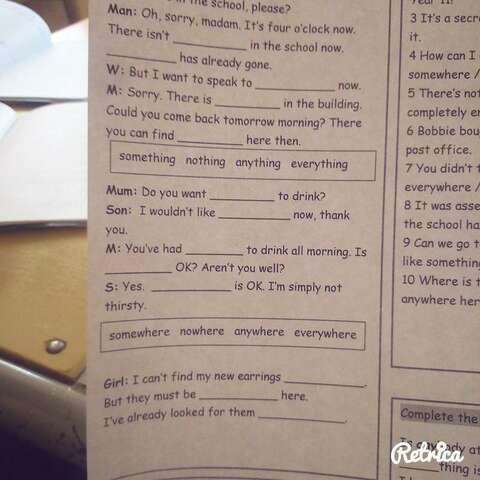 in the school, please?
Man: Oh, sorry, madam. It's four o'clock now.
There isn't ____________ in the school now.
____________ has already gone.
W: But I want to speak to ____________ now.
M: Sorry. There is ____________ in the building.
Could you come back tomorrow morning? There
you can find ____________ here then.
something nothing anything everything
Mum: Do you want ____________ to drink?
Son: I wouldn't like ____________ now, thank
you.
M: You've had ____________ to drink all morning. Is
____________ OK? Aren't you well?
S: Yes. ____________ is OK. I'm simply not
thirsty.
somewhere nowhere anywhere everywhere
Girl: I can't find my new earrings ____________.
But they must be ____________ here.
I've already looked for them ____________.
3 It's a
it.
4 How can I
somewhere /
5 There's
completely
6 Bobbie
post office.
7 You didn't
everywhere /
8 It was
the school
9 Can we go
like
10 Where is
anywhere
Complete the
thing
Retrica